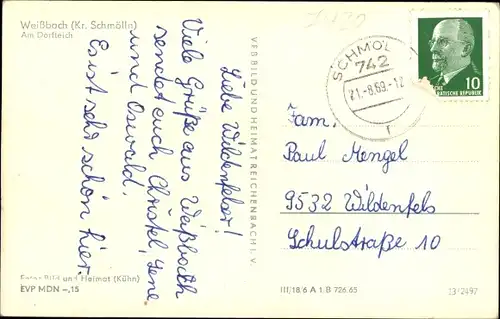 Weißbach (Kr. Schmölln)
Am Dorfteich
Liebe Wildenfelser!
Viele Grüße aus Weißbach
sendet euch Christel, Lene
und Oswald.
Es ist sehr schön hier.
Foto: Bild und Heimat (Kühn)
EVP MDN –,15
VEB BILD UND HEIMAT REICHENBACH I. V.
SCHMÖL
742
21.-8.69.-12
10
DEMOKRATISCHE REPUBLIK
Fam.
Paul Mengel
9532 Wildenfels
Schulstraße 10
III/18/6 A 1, B 726, 65
13/2497